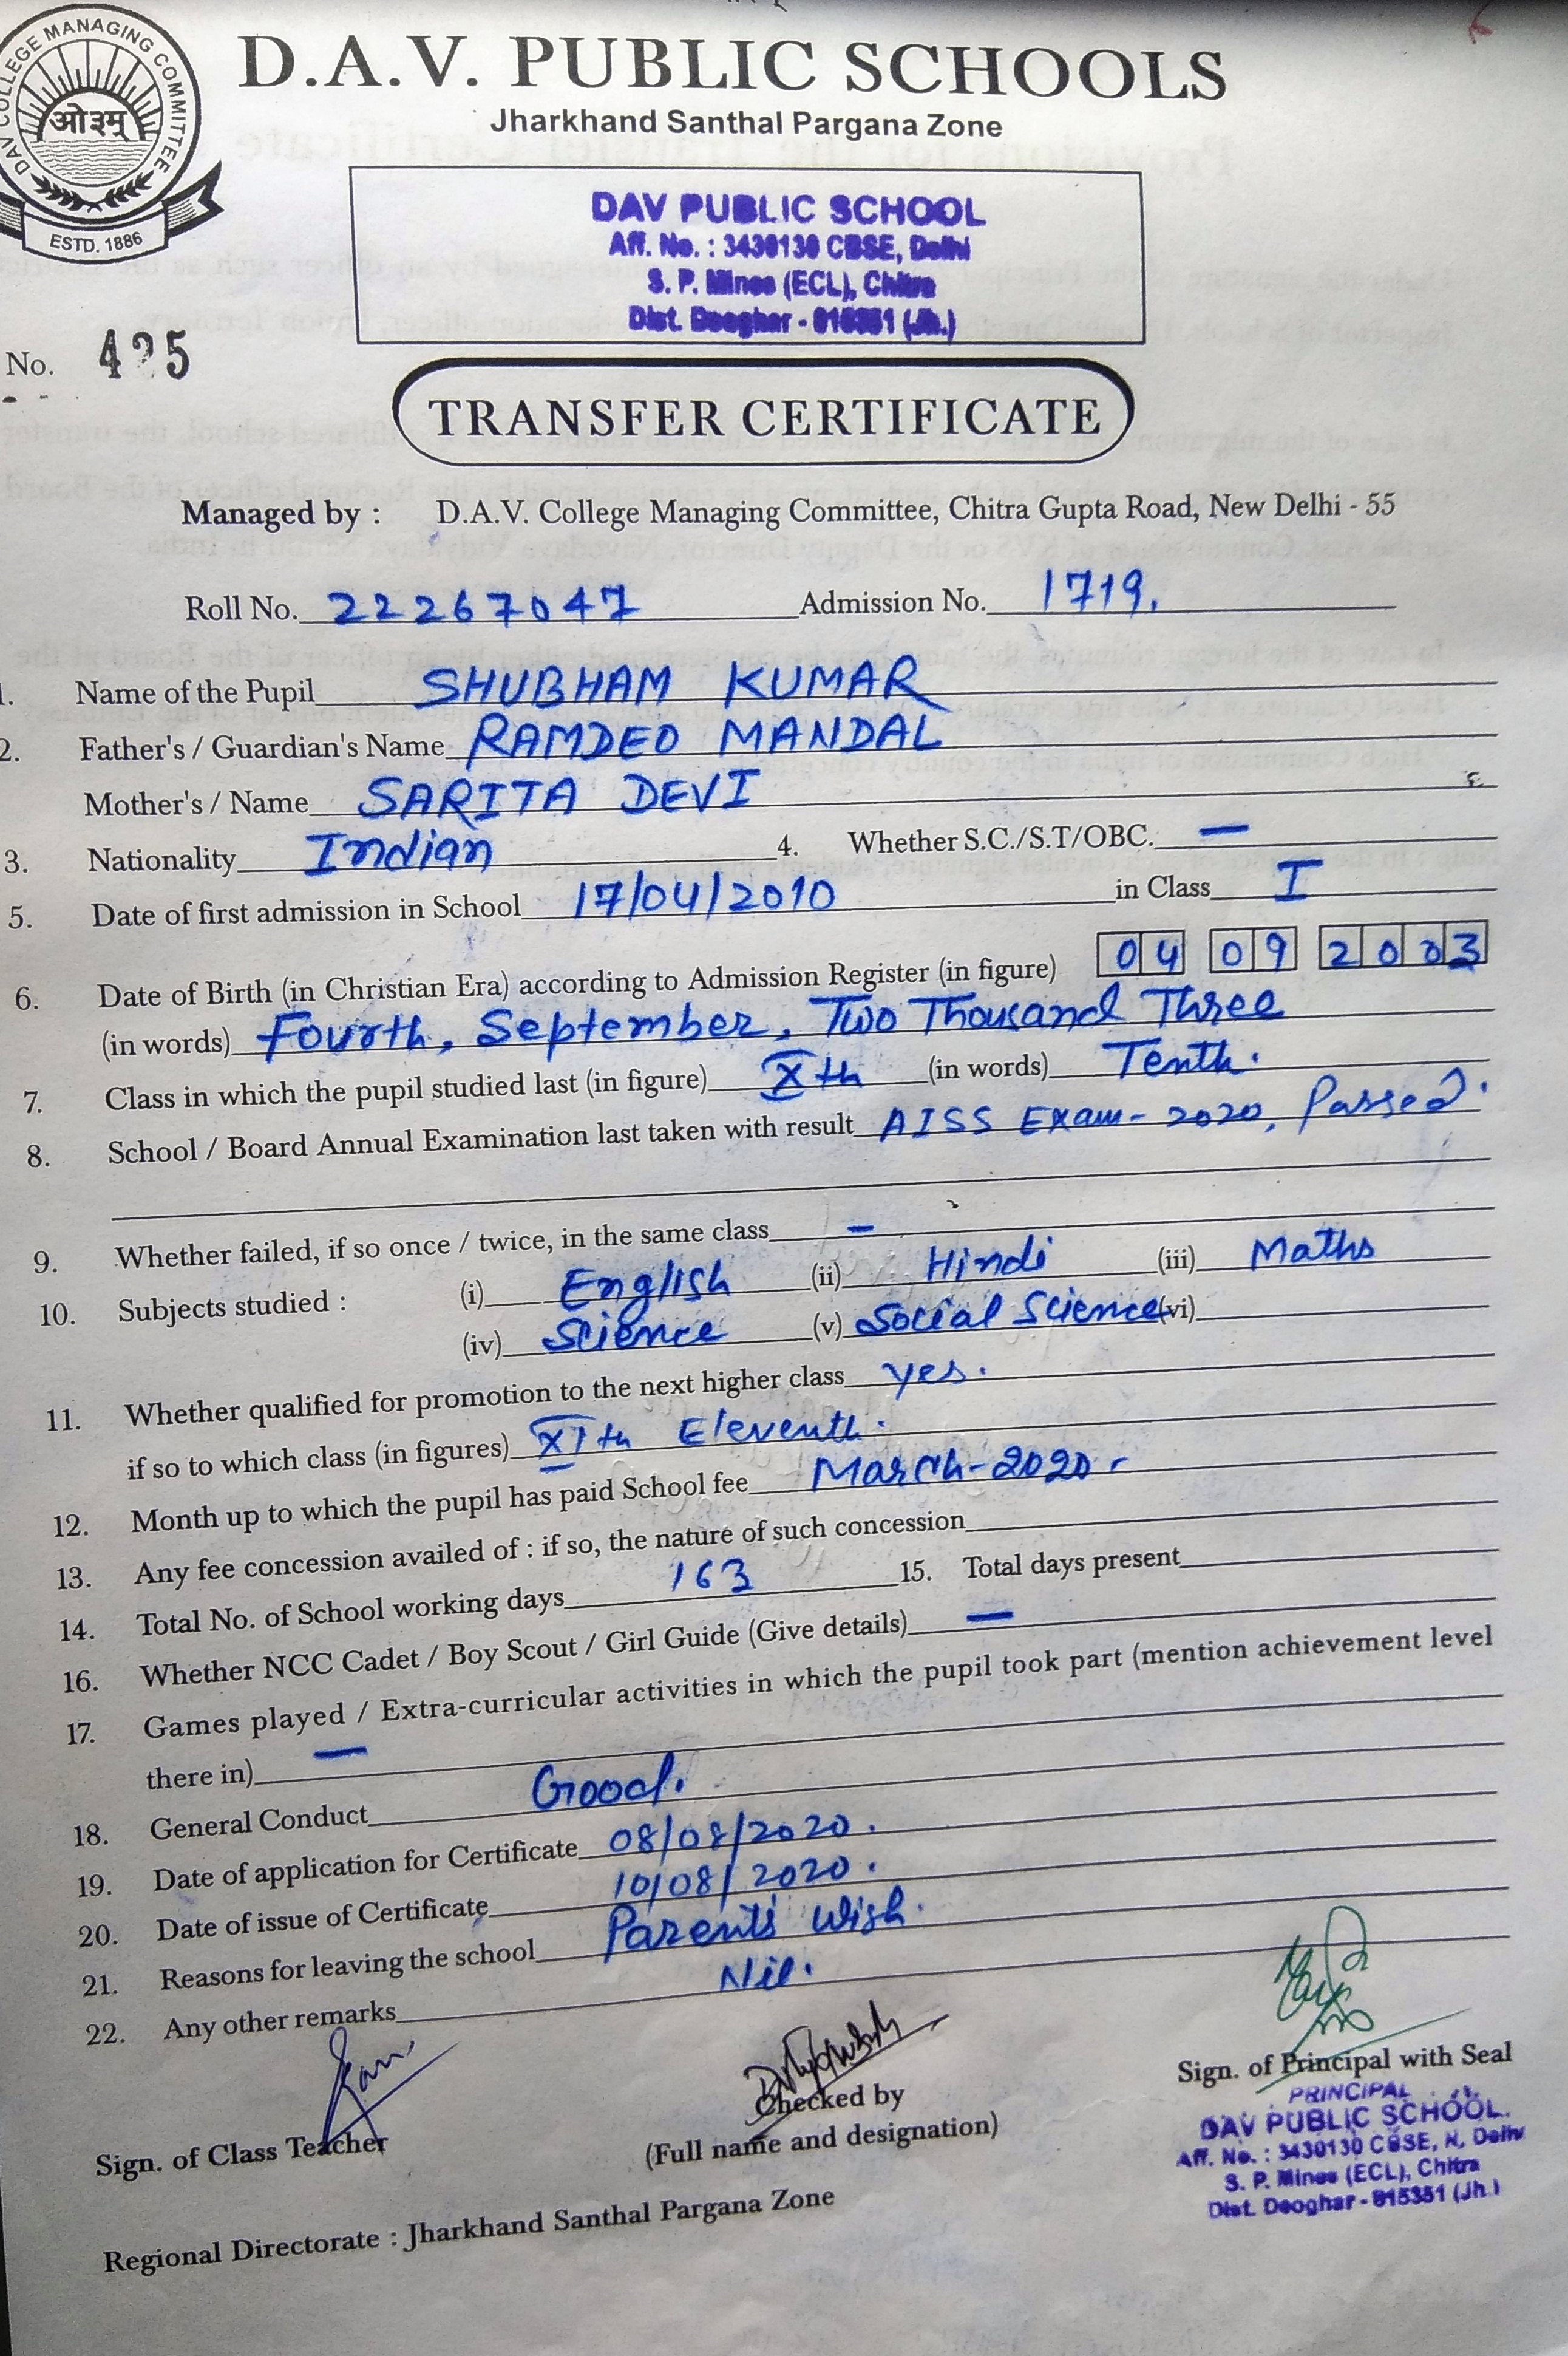 DAV COLLEGE MANAGING COMMITTEE
ओ३म्
ESTD. 1886
D.A.V. PUBLIC SCHOOLS
Jharkhand Santhal Pargana Zone
DAV PUBLIC SCHOOL
Aff. No. : 3430130 CBSE, Delhi
S. P. Mines (ECL), Chitra
Dist. Deoghar - 815351 (Jh.)
No. 425
TRANSFER CERTIFICATE
Managed by : D.A.V. College Managing Committee, Chitra Gupta Road, New Delhi - 55
Roll No. 22267047 Admission No. 1719.
1. Name of the Pupil SHUBHAM KUMAR
2. Father's / Guardian's Name RAMDEO MANDAL
Mother's / Name SARITA DEVI
3. Nationality Indian 4. Whether S.C./S.T/OBC. —
5. Date of first admission in School 17/04/2010 in Class I
6. Date of Birth (in Christian Era) according to Admission Register (in figure) 04 09 2003
(in words) Fourth, September, Two Thousand Three
7. Class in which the pupil studied last (in figure) Xth (in words) Tenth.
8. School / Board Annual Examination last taken with result AISS Exam - 2020, Passed.
9. Whether failed, if so once / twice, in the same class —
10. Subjects studied : (i) English (ii) Hindi (iii) Maths
(iv) Science (v) Social Science (vi)
11. Whether qualified for promotion to the next higher class yes.
if so to which class (in figures) XIth Eleventh.
12. Month up to which the pupil has paid School fee March-2020.
13. Any fee concession availed of : if so, the nature of such concession
14. Total No. of School working days 163 15. Total days present
16. Whether NCC Cadet / Boy Scout / Girl Guide (Give details) —
17. Games played / Extra-curricular activities in which the pupil took part (mention achievement level
there in) —
18. General Conduct Good.
19. Date of application for Certificate 08/08/2020.
20. Date of issue of Certificate 10/08/2020.
21. Reasons for leaving the school Parent's Wish.
22. Any other remarks Nil.
Sign. of Class Teacher
Checked by
(Full name and designation)
Sign. of Principal with Seal
PRINCIPAL
DAV PUBLIC SCHOOL.
Aff. No. : 3430130 CBSE, N. Delhi
S. P. Mines (ECL), Chitra
Dist. Deoghar - 815351 (Jh.)
Regional Directorate : Jharkhand Santhal Pargana Zone